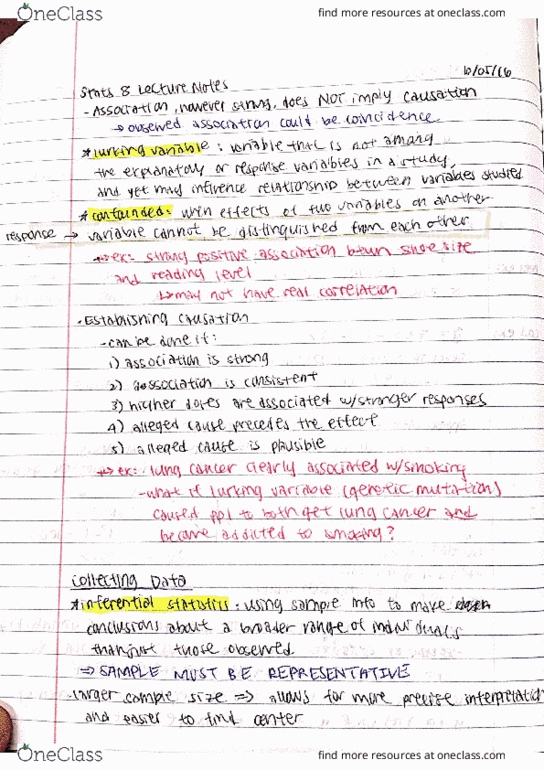 OneClass
find more resources at oneclass.com
10/05/16
Stats 8 Lecture Notes
- Association, however strong, does NOT imply causation
→ observed association could be coincidence
*lurking variable: variable that is not among
the explanatory or response variables in a study,
and yet may influence relationship between variables studied
*confounded: when effects of two variables on another
response → variable cannot be distinguished from each other
→ ex: strong positive association btwn shoe size
and reading level
↳ may not have real correlation
- Establishing causation
- can be done if:
1) association is strong
2) association is consistent
3) higher doses are associated w/stronger responses
4) alleged cause precedes the effect
5) alleged cause is plausible
→ ex: lung cancer clearly associated w/smoking
- what if lurking variable (genetic mutation)
caused ppl to both get lung cancer and
become addicted to smoking?
Collecting Data
*inferential statistics: using sample info to make
conclusions about a broader range of individuals
than just those observed.
⇒ SAMPLE MUST BE REPRESENTATIVE
- larger sample size ⇒ allows for more precise interpretation
and easier to find center
OneClass
find more resources at oneclass.com